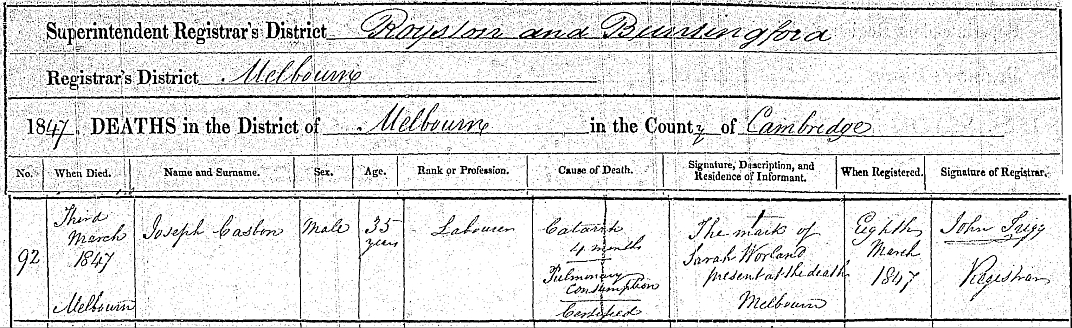 Superintendent Registrar's District Royston and Buntingford
Registrar's District Melbourn
1847. DEATHS in the District of Melbourn in the County of Cambridge
No. When Died. Name and Surname. Sex. Age. Rank or Profession. Cause of Death. Signature, Description, and Residence of Informant. When Registered. Signature of Registrar.
92
Third
March
1847
Melbourn
Joseph Casbon
Male
35
years
Labourer
Catarrh
4 months
Pulmonary
Consumption
Certified
The mark of
Sarah Worland
present at the death
Melbourn
Eighth
March
1847
John Trigg
Registrar